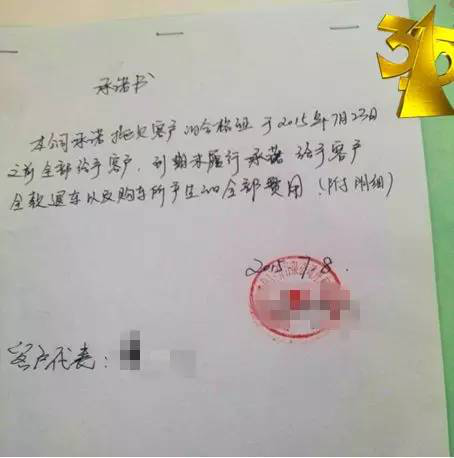 315
承诺书
本公司承诺拖欠客户的合格证于2015年7月23日
之前全部给予客户,到期未履行承诺给予客户
全款退车以及购车所产生的全部费用(附明细)
2015.7.8.
客户代表: